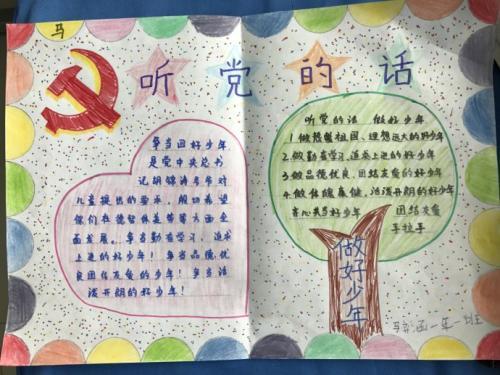 马
听党的话
争当四好少年
是党中央总书
记胡锦涛爷爷对
儿童提出的要求，殷切希望
他们在德智体美等等方面全
面发展。争当勤奋学习、追求
上进的好少年！争当品德优
良团结友爱的少年！争当活
泼开朗的好少年！
听党的话 做好少年
1.做热爱祖国，理想远大的好少年
2.做勤奋学习，追求上进的好少年
3.做品德优良，团结友爱的好少年
4.做体魄康健，活泼开朗的好少年
齐心共当好少年 团结友爱
手拉手
做好少年
一年一班